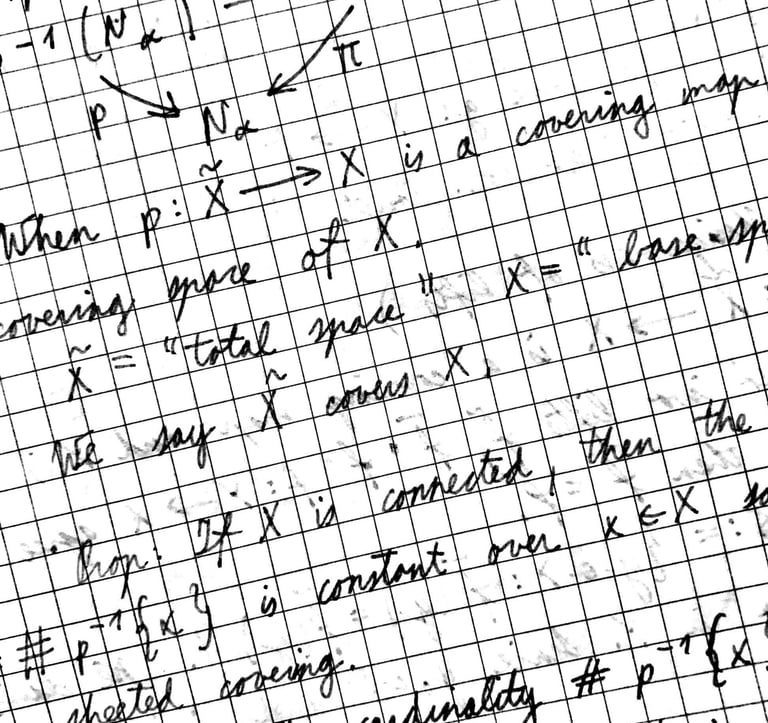 -1 (N_α)
π
p
N_α
When p: X̃ ⟶ X is a covering map
covering space of X.
X̃ = "total space" X = "base
We say X̃ covers X.
Prop: If X is connected, then the
# p⁻¹{x} is constant over x ∈ X
sheeted covering.
cardinality # p⁻¹{x}